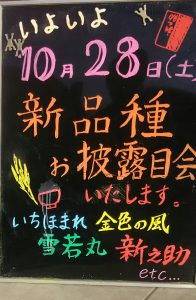 いよいよ
10月28日(土
新品種
お披露目会
いたします。
いちほまれ 金色の風
雪若丸 新之助
etc...